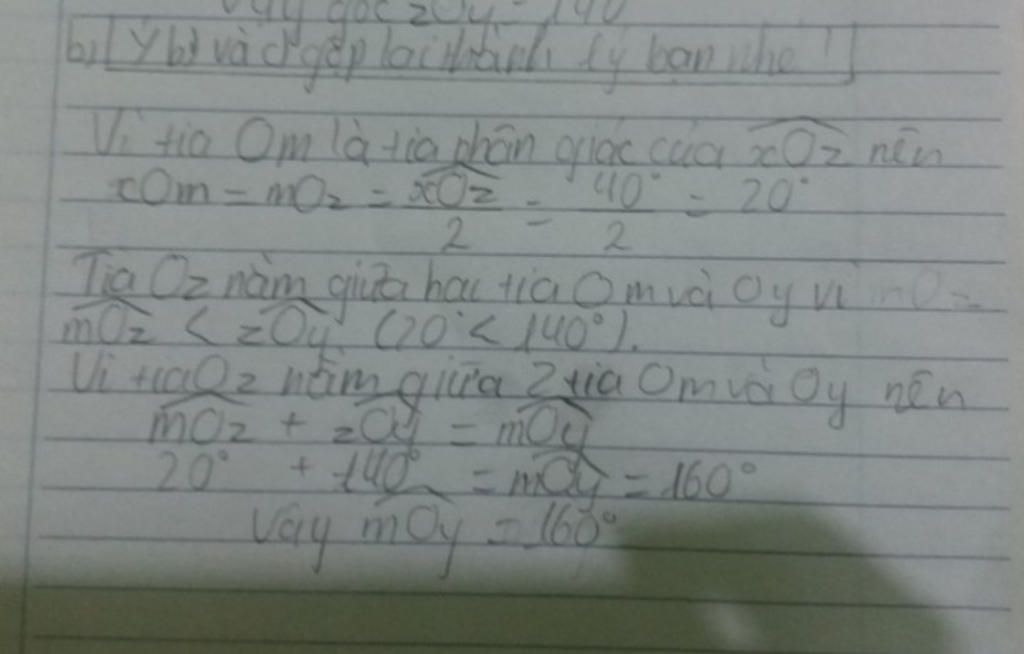 Vậy góc zOy = 140
b) Ý b) và d gộp lại thành 1 ý bạn nhé !
Vì tia Om là tia phân giác của xOz nên
xOm = mOz = xOz/2 = 40°/2 = 20°
Tia Oz nằm giữa hai tia Om và Oy vì mOz
mOz < zOy (20° < 140°).
Vì tia Oz nằm giữa 2 tia Om và Oy nên
mOz + zOy = mOy
20° + 140° = mOy = 160°
Vậy mOy = 160°